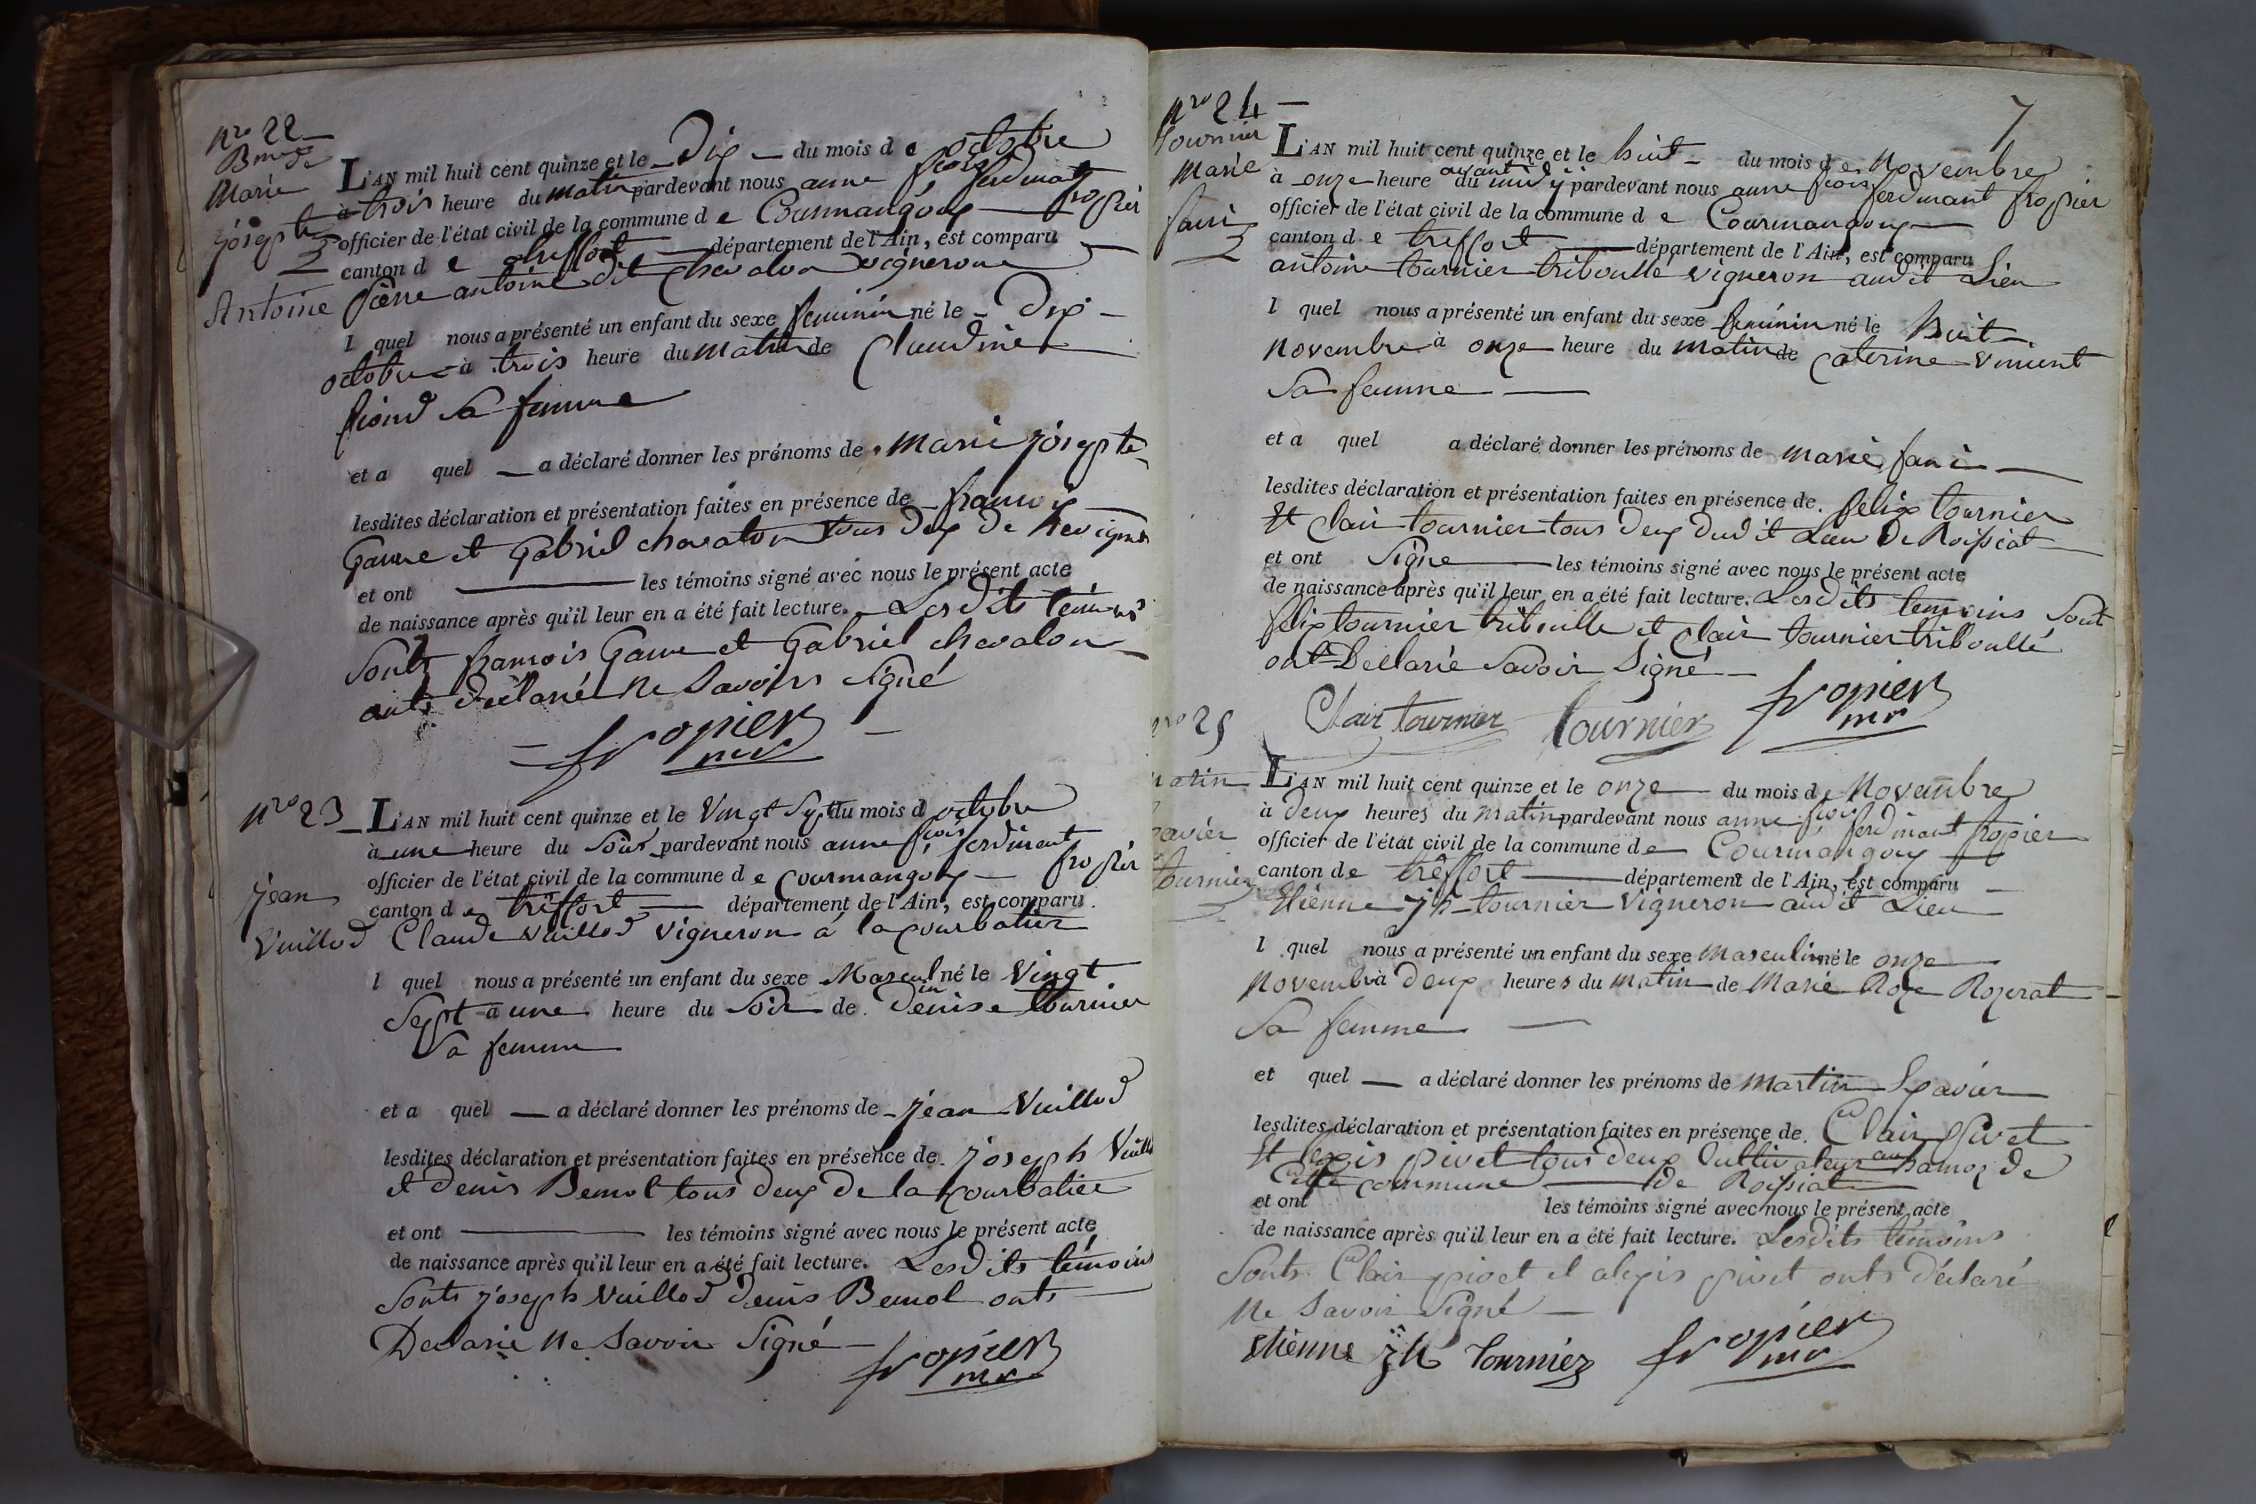 nro 22
Marie
josepte
Antoine
L'AN mil huit cent quinze et le Dix du mois de octobre
à trois heure du matin pardevant nous anne fçois ferdinant fropier
officier de l'état civil de la commune de Courmangoux
canton de treffort département de l'Ain, est comparu
pierre antoine dit chevalon vigneron
l quel nous a présenté un enfant du sexe feminin né le Dix
octobre à trois heure du matin de Claudine
piond Sa femme
et a quel a déclaré donner les prénoms de Marie josepte
lesdites déclaration et présentation faites en présence de françois
Ganne et Gabriel chevalon tous deux de
et ont les témoins signé avec nous le présent acte
de naissance après qu'il leur en a été fait lecture. Lesdits témoins
Sonts françois Ganne et Gabriel chevalon
onts déclaré Ne Savoirs Signé
fropier
mr
nro 23
jean
Vuillod
L'AN mil huit cent quinze et le Vingt Sept du mois d octobre
à une heure du Soir pardevant nous anne fçois ferdinant
officier de l'état civil de la commune de Courmangoux fropier
canton de treffort département de l'Ain, est comparu
Claude Vuillod Vigneron á la courbatier
l quel nous a présenté un enfant du sexe Masculin né le Vingt
Sept à une heure du Soir de Denise tournier
Sa femme
et a quel a déclaré donner les prénoms de jean Vuillod
lesdites déclaration et présentation faites en présence de joseph Vuillod
et Denis Bemol tous deux de la Courbatier
et ont les témoins signé avec nous le présent acte
de naissance après qu'il leur en a été fait lecture. Lesdits témoins
Sonts joseph Vuillod Denis Bemol onts
Declarié Ne Savoir Signé
fropier
mr
7
nro 24
tournier
Marie
fani
L'AN mil huit cent quinze et le huit du mois de Novembre
à onze heure avant du midÿ pardevant nous anne fçois ferdinant fropier
officier de l'état civil de la commune de Courmangoux
canton de treffort département de l'Ain, est comparu
antoine tournier triboullé vigneron audit Lieu
l quel nous a présenté un enfant du sexe feminin né le huit
Novembre à onze heure du matin de Caterine vincent
Sa femme
et a quel a déclaré donner les prénoms de marie fani
lesdites déclaration et présentation faites en présence de felix tournier
Et Clair tournier tous deux dudit Lieu De Roissiat
et ont Signe les témoins signé avec nous le présent acte
de naissance après qu'il leur en a été fait lecture. Lesdits temoins Sont
felix tournier triboulle et Clair tournier triboullé
ont Dellarié Savoir Signé
Clair tournier tournier fropier
mr
nro 25
Matin
xavier
tournier
L'AN mil huit cent quinze et le onze du mois de Novembre
à deux heures du matin pardevant nous anne fçois ferdinant fropier
officier de l'état civil de la commune de Courmangoux
canton de treffort département de l'Ain, est comparu
Etienne jh tournier Vigneron audit Lieu
l quel nous a présenté un enfant du sexe Masculin né le onze
Novembre à Deux heures du Matin de Marie Roze Rozerat
Sa femme
et quel a déclaré donner les prénoms de Martin Xavier
lesdites déclaration et présentation faites en présence de Clair pivet
Et alexis pivet tous deux Cultivateur au hamoz de
Cette commune de Roissiat
et ont les témoins signé avec nous le présent acte
de naissance après qu'il leur en a été fait lecture. Lesdits témoins
Sonts Clair pivet et alexis pivet onts déclaré
Ne Savoir Signé
etienne jh tournier fropier
mr